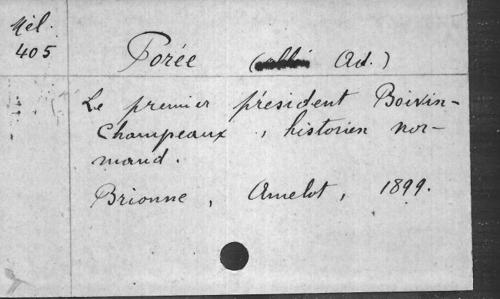 Mél.
405
Porée ( Ad.)
Le premier président Boivin-
Champeaux, historien nor-
mand.
Brionne, Amelot, 1899.